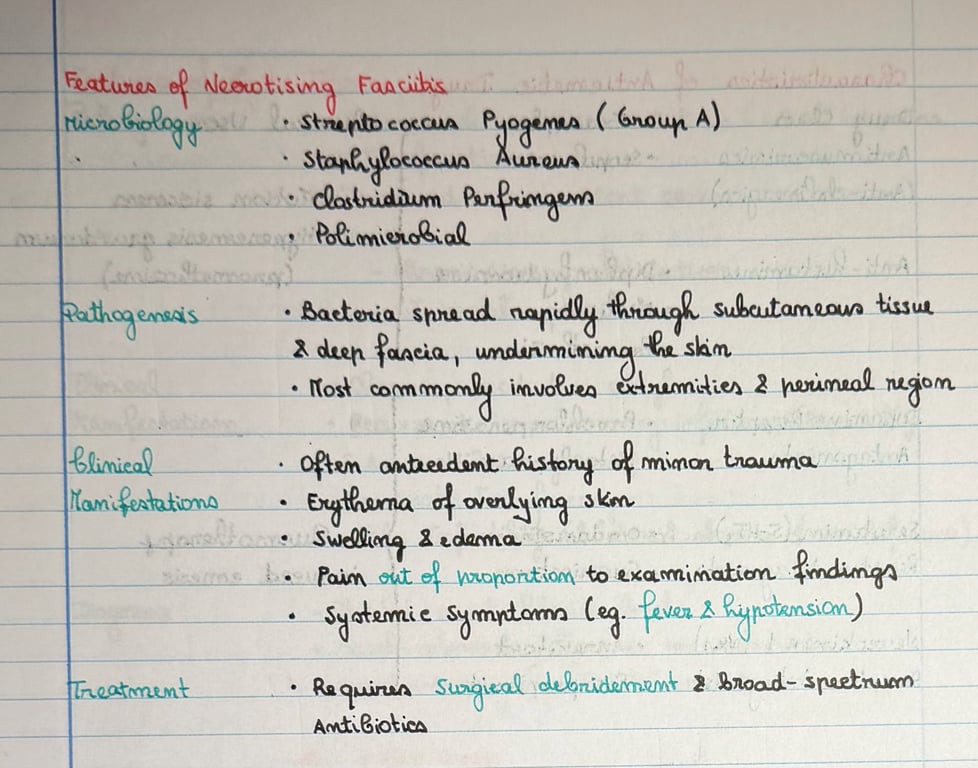 Features of Necrotising Fasciitis
Microbiology • Streptococcus Pyogenes (Group A)
• Staphylococcus Aureus
• Clostridium Perfringens
• Polimicrobial
Pathogenesis • Bacteria spread rapidly through subcutaneous tissue
& deep fascia, undermining the skin
• Most commonly involves extremities & perineal region
Clinical • Often antecedent history of minor trauma
Manifestations • Erythema of overlying skin
• Swelling & edema
• Pain out of proportion to examination findings
• Systemic symptoms (eg. fever & hypotension)
Treatment • Requires Surgical debridement & Broad-spectrum
Antibiotics